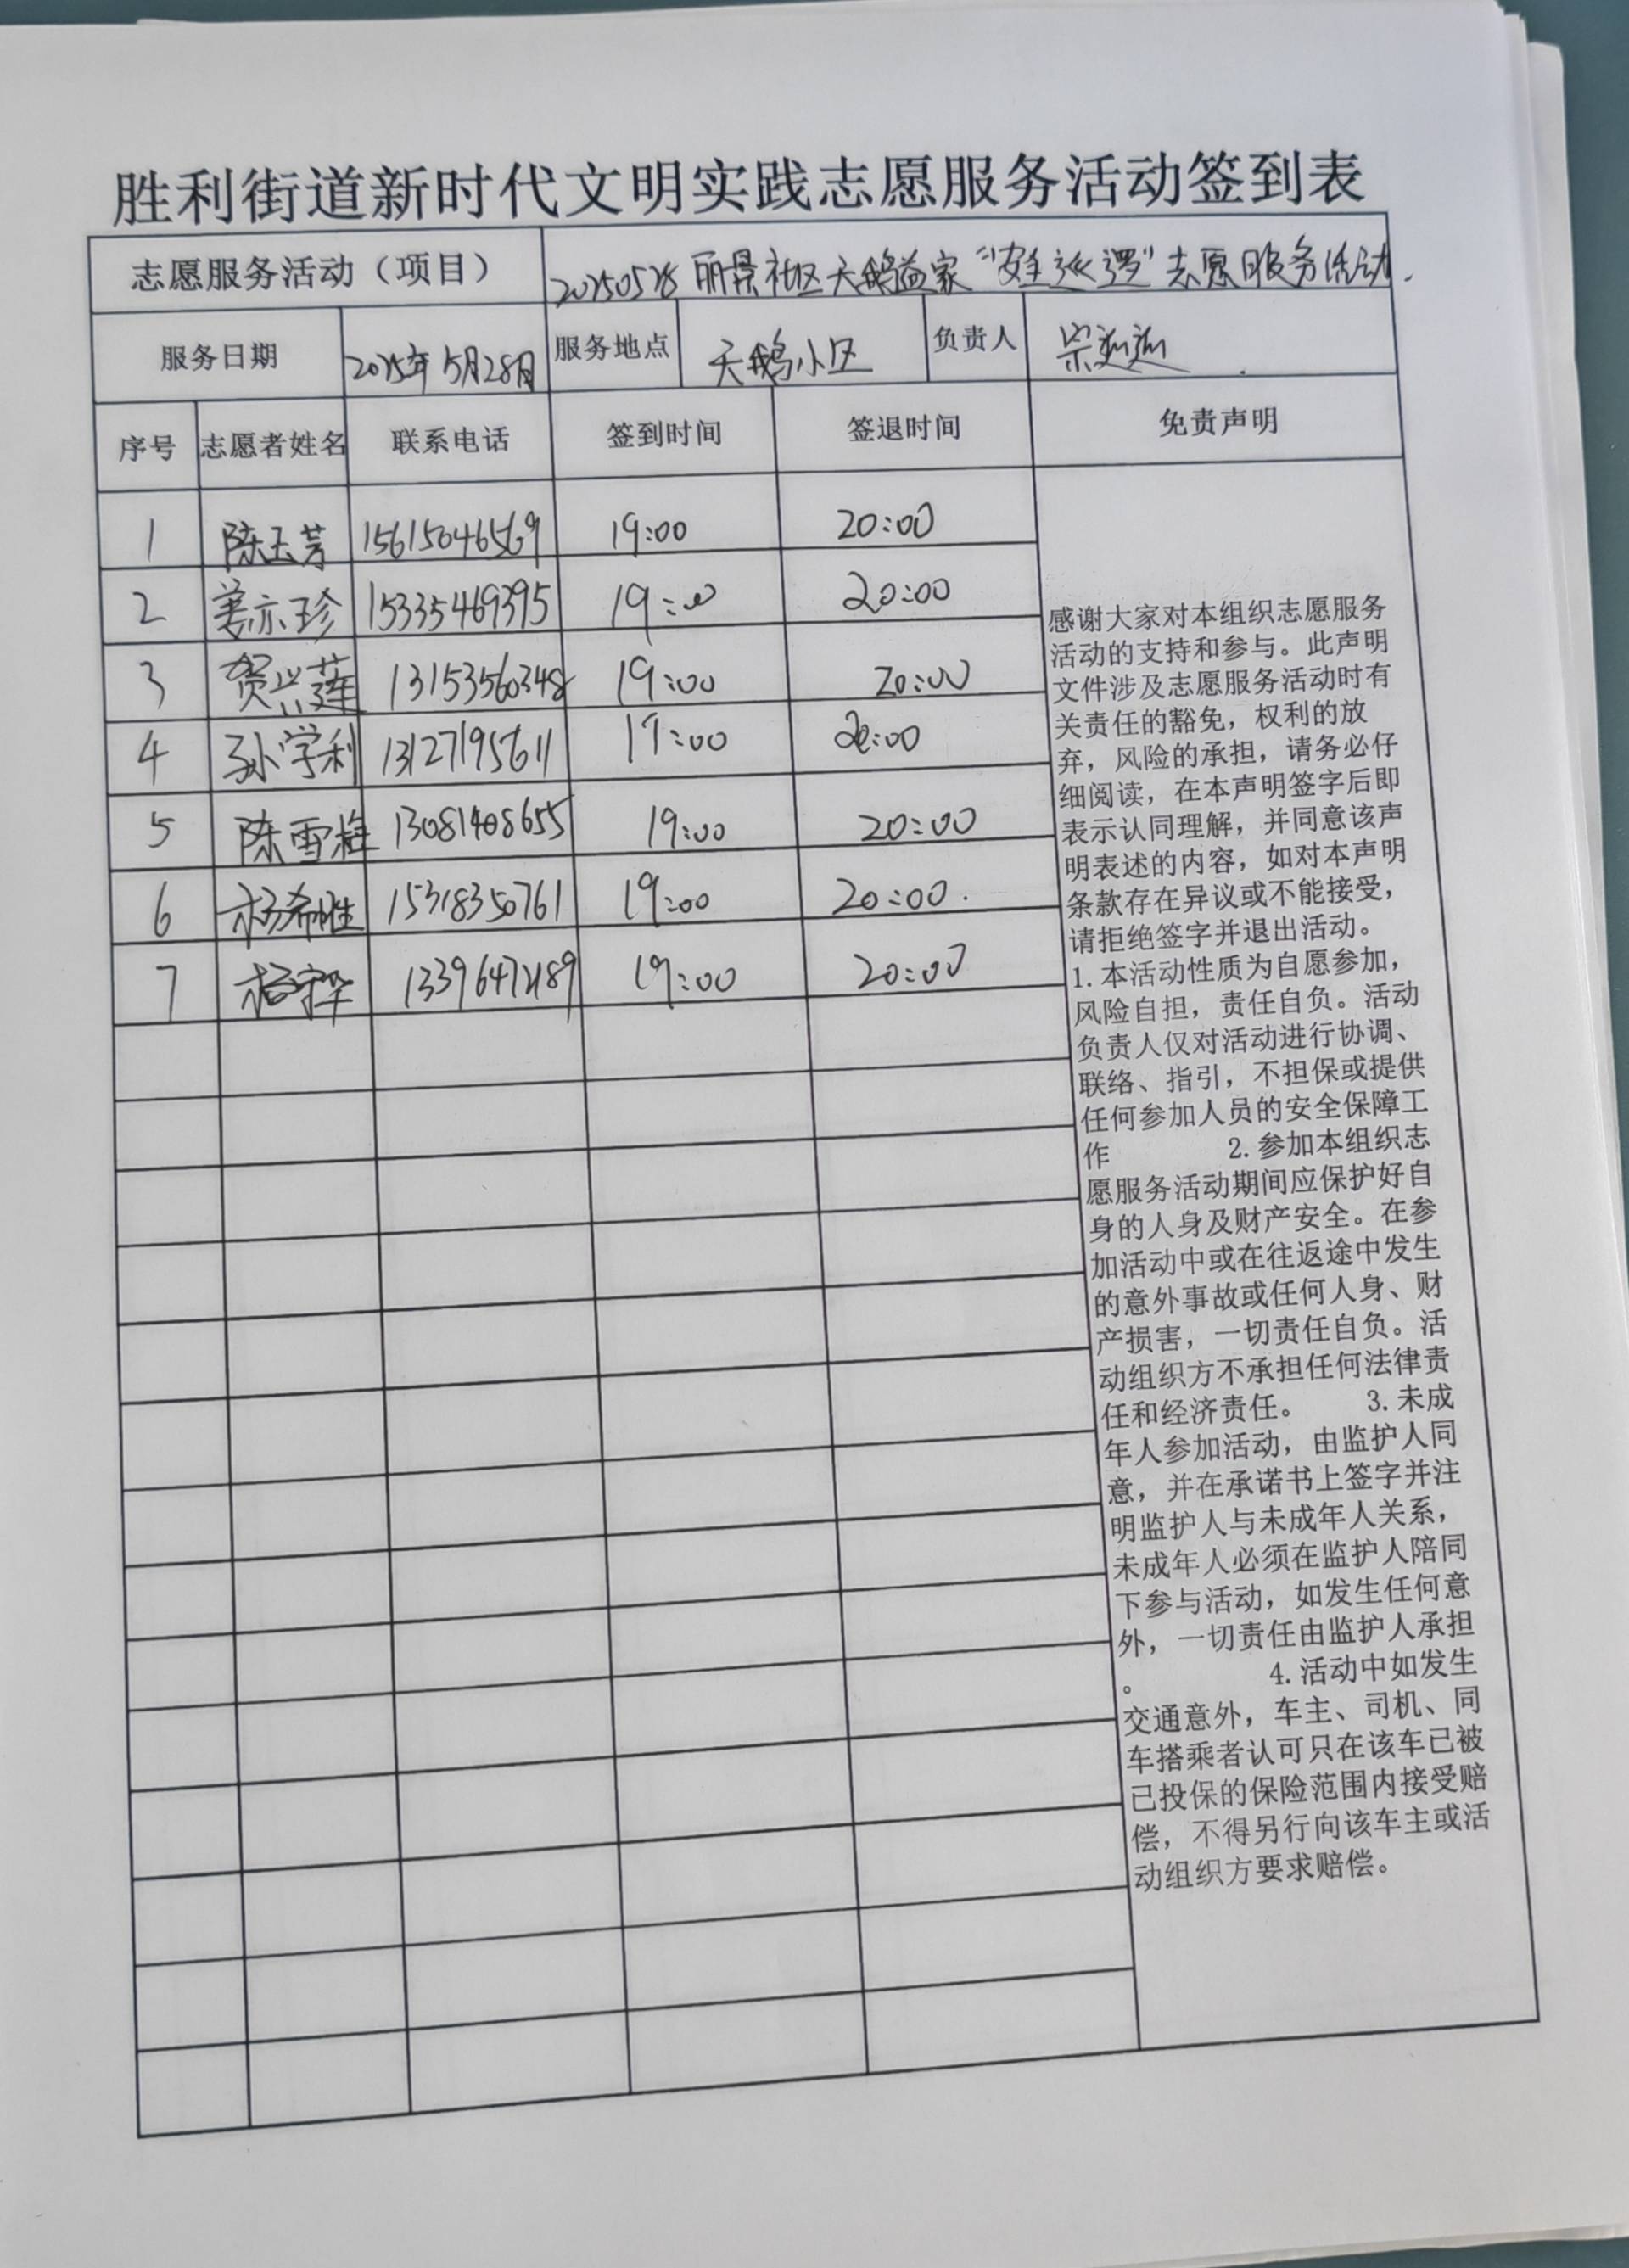 胜利街道新时代文明实践志愿服务活动签到表
志愿服务活动（项目） 20250528 丽景社区天鹅益家“安全巡逻”志愿服务活动.
服务日期 2025年5月28日 服务地点 天鹅小区 负责人
序号 志愿者姓名 联系电话 签到时间 签退时间 免责声明
1 陈玉芳 15615046569 19:00 20:00
2 姜亦珍 15335469395 19:00 20:00
3 贺兴莲 13153560348 19:00 20:00
4 孙学利 13127195611 19:00 20:00
5 陈雪梅 13081408655 19:00 20:00
6 杨希胜 15318350761 19:00 20:00.
7 19:00 20:00
感谢大家对本组织志愿服务
活动的支持和参与。此声明
文件涉及志愿服务活动时有
关责任的豁免，权利的放
弃，风险的承担，请务必仔
细阅读，在本声明签字后即
表示认同理解，并同意该声
明表述的内容，如对本声明
条款存在异议或不能接受，
请拒绝签字并退出活动。
1.本活动性质为自愿参加，
风险自担，责任自负。活动
负责人仅对活动进行协调、
联络、指引，不担保或提供
任何参加人员的安全保障工
作 2.参加本组织志
愿服务活动期间应保护好自
身的人身及财产安全。在参
加活动中或在往返途中发生
的意外事故或任何人身、财
产损害，一切责任自负。活
动组织方不承担任何法律责
任和经济责任。 3.未成
年人参加活动，由监护人同
意，并在承诺书上签字并注
明监护人与未成年人关系，
未成年人必须在监护人陪同
下参与活动，如发生任何意
外，一切责任由监护人承担
。 4.活动中如发生
交通意外，车主、司机、同
车搭乘者认可只在该车已被
已投保的保险范围内接受赔
偿，不得另行向该车主或活
动组织方要求赔偿。